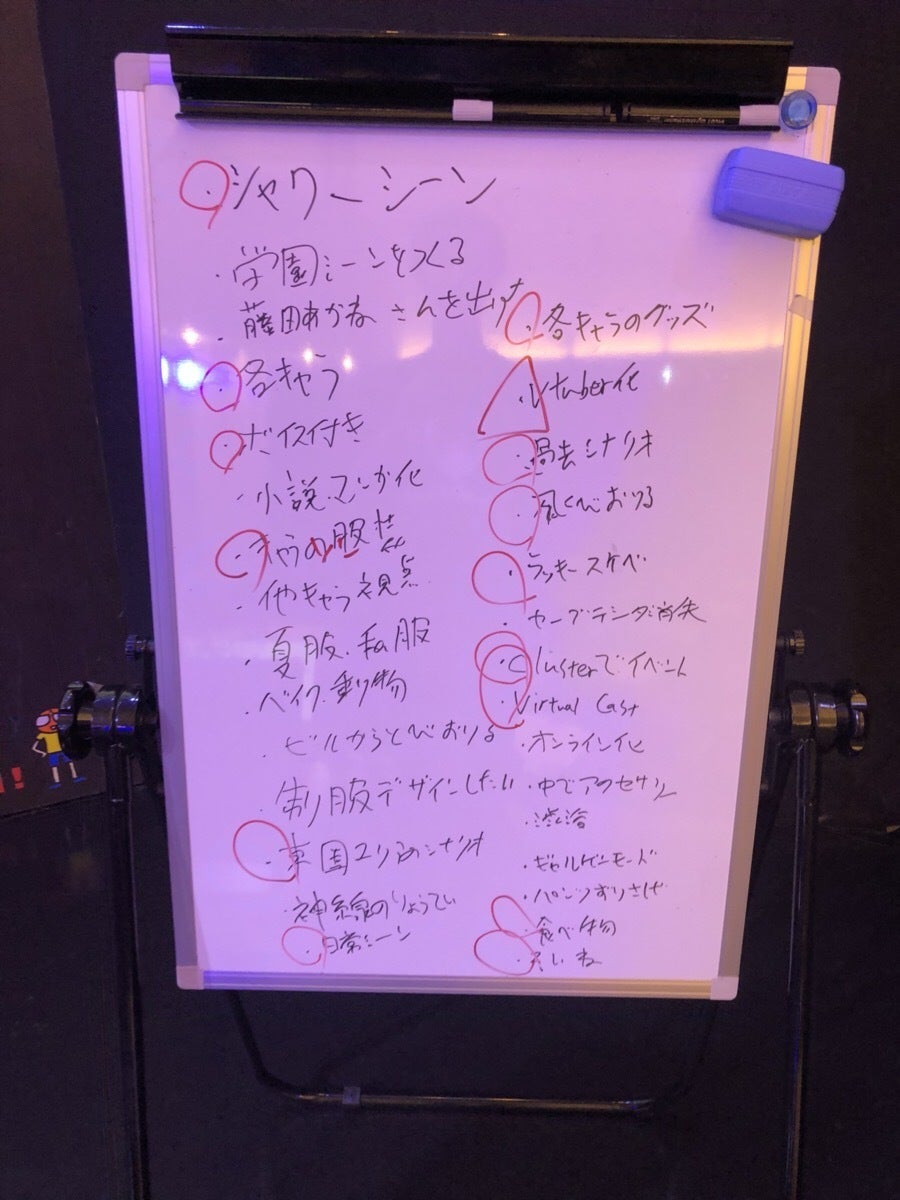 ・シャワーシーン
・学園シーンをつくる
・藤田あかねさんを出す
・各キャラ
・ボイス付き
・小説.マンガ化
・キャラの服
・他キャラ視点
・夏服.私服
・バイク.乗り物
・ビルからとびおりる
制服デザインしたい
・シナリオ
・神経のりょうてい
・日常シーン
・各キャラのグッズ
・Vtuber化
・過去シナリオ
・とびおりる
・ラッキースケベ
・セーブデータ消失
・Clusterでイベント
・Virtual Cast
・オンライン化
・中でアクセサリ
・渋谷
・ギャルゲーモード
・パンツずりさげ
・食べ物